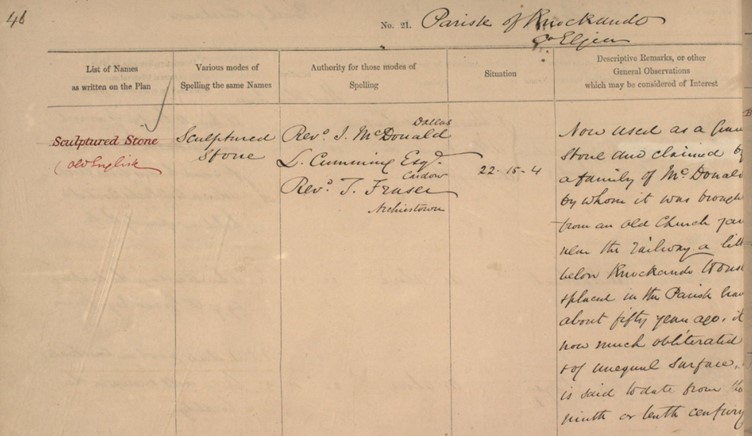 46
No. 21. Parish of Knockando
Co Elgin
List of Names
as written on the Plan
Various modes of
Spelling the same Names
Authority for those modes of
Spelling
Situation
Descriptive Remarks, or other
General Observations
which may be considered of Interest
Sculptured Stone
(Old English
Sculptured
Stone
Revd. J. McDonald
Dallas
L. Cumming Esqr.
Cardow
Revd. J. Fraser
Archiestown
22-15-4
Now used as a
Stone and claimed by
a family of McDonald
by whom it was
from an old Church
near the railway a
below Knockando House
& placed in the Parish
about fifty years ago.
now much obliterated
& of unequal surface,
is said to date from
ninth or tenth century